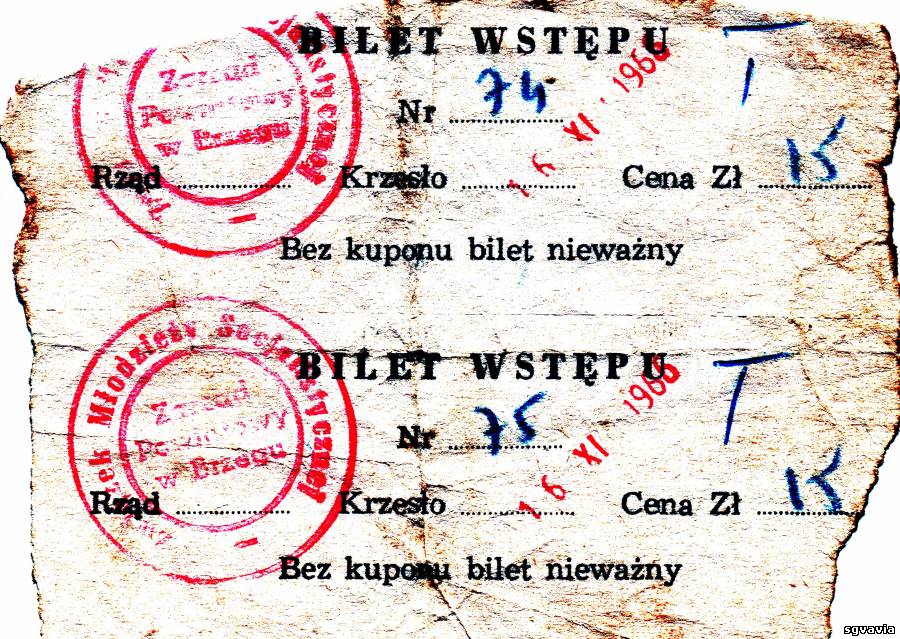 BILET WSTĘPU T
Nr 74
16 XI 1966
Rząd Krzesło Cena Zł 15
Bez kuponu bilet nieważny
Socjalistycznej
Zarząd
Powiatowy
w Brzegu
BILET WSTĘPU T
Nr 75
16 XI 1966
Rząd Krzesło Cena Zł 15
Bez kuponu bilet nieważny
Związek Młodzieży Socjalistycznej
Zarząd
Powiatowy
w Brzegu
sgvavia